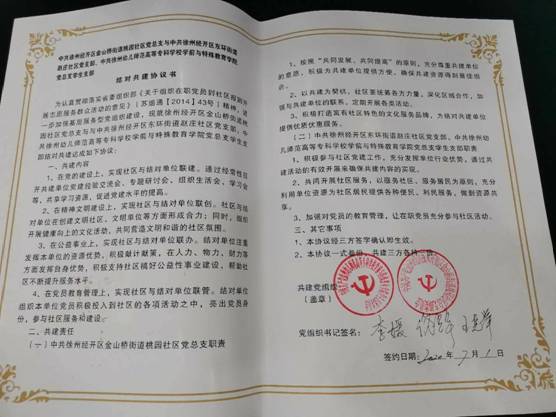 中共徐州经开区金山桥街道桃园社区党总支与中共徐州经开区东环街道
赵庄社区党支部、中共徐州幼儿师范高等专科学校学前与特殊教育学院
党总支学生支部
结对共建协议书
为认真贯彻落实省委组织部《关于组织在职党员到社区报到开
展志愿服务群众活动的意见》（苏组通【2014】43号）精神，进
一步加强基层服务型党组织建设，现就徐州经开区金山桥街道桃
园社区党总支与与中共徐州经开区东环街道赵庄社区党支部、中共徐州幼
儿师范高等专科学校学前与特殊教育学院党总支学生支
部结对共建达成如下协议：
一、共建内容
1、在党的建设上，实现社区与结对单位联建。通过经常性召
开共建单位党建经验交流会、专题研讨会、组织生活会、学习会
等，共享学习资源、促进党建水平的提高。
2、在精神文明建设上，实现社区与结对单位联创。社区与结
对单位在创建文明社区、文明单位等方面形成合力；同时，组织
开展健康向上的文化活动，共同营造文明和谐的社区氛围。
3、在公益事业上，实现社区与结对单位联办。结对单位注重
发挥本单位的资源优势，积极献计献策，在人力、物力、财力等
方面发挥自身优势，积极支持社区搞好公益性事业建设，帮助社
区不断提升服务水平。
4、在党员教育管理上，实现社区与结对单位联管。结对单位
组织本单位党员积极投入到社区的各项活动之中，亮出党员身
份，参与社区服务和建设。
二、共建责任
（一）中共徐州经开区金山桥街道桃园社区党总支职责
1、按照“共同发展、共同提高”的原则，充分尊重共建单位
的意愿，积极为共建单位提供方便，确保共建资源得到最佳组
合。
2、以共建为契机，社区要统筹各方力量，深化区域合作，加
强与共建单位的联系，定期开展各类活动。
3、积极打造富有社区特色的文化服务品牌，为结对共建单位
提供优质优惠服务。
（二）中共徐州经开区东环街道赵庄社区党支部、中共徐州幼
儿师范高等专科学校学前与特殊教育学院党总支学生支部职责
1、积极参与社区党建工作，充分发挥单位行业优势，通过共
建活动的有效开展来确保共建内容的实现。
2、共同开展社区服务，以服务社区、服务居民为原则，充分
利用单位资源为社区居民提供各种便民、利民服务，做到资源共
享。
3、加强对党员的教育管理，让在职党员充分参与社区活动。
三、其它事项
1、本协议经三方签字确认即生效。
2、本协议一式叁份，共建三方各持一份。
共建党组织
（盖章）
党组织书记签名：李媛
签约日期：2020年7月1日